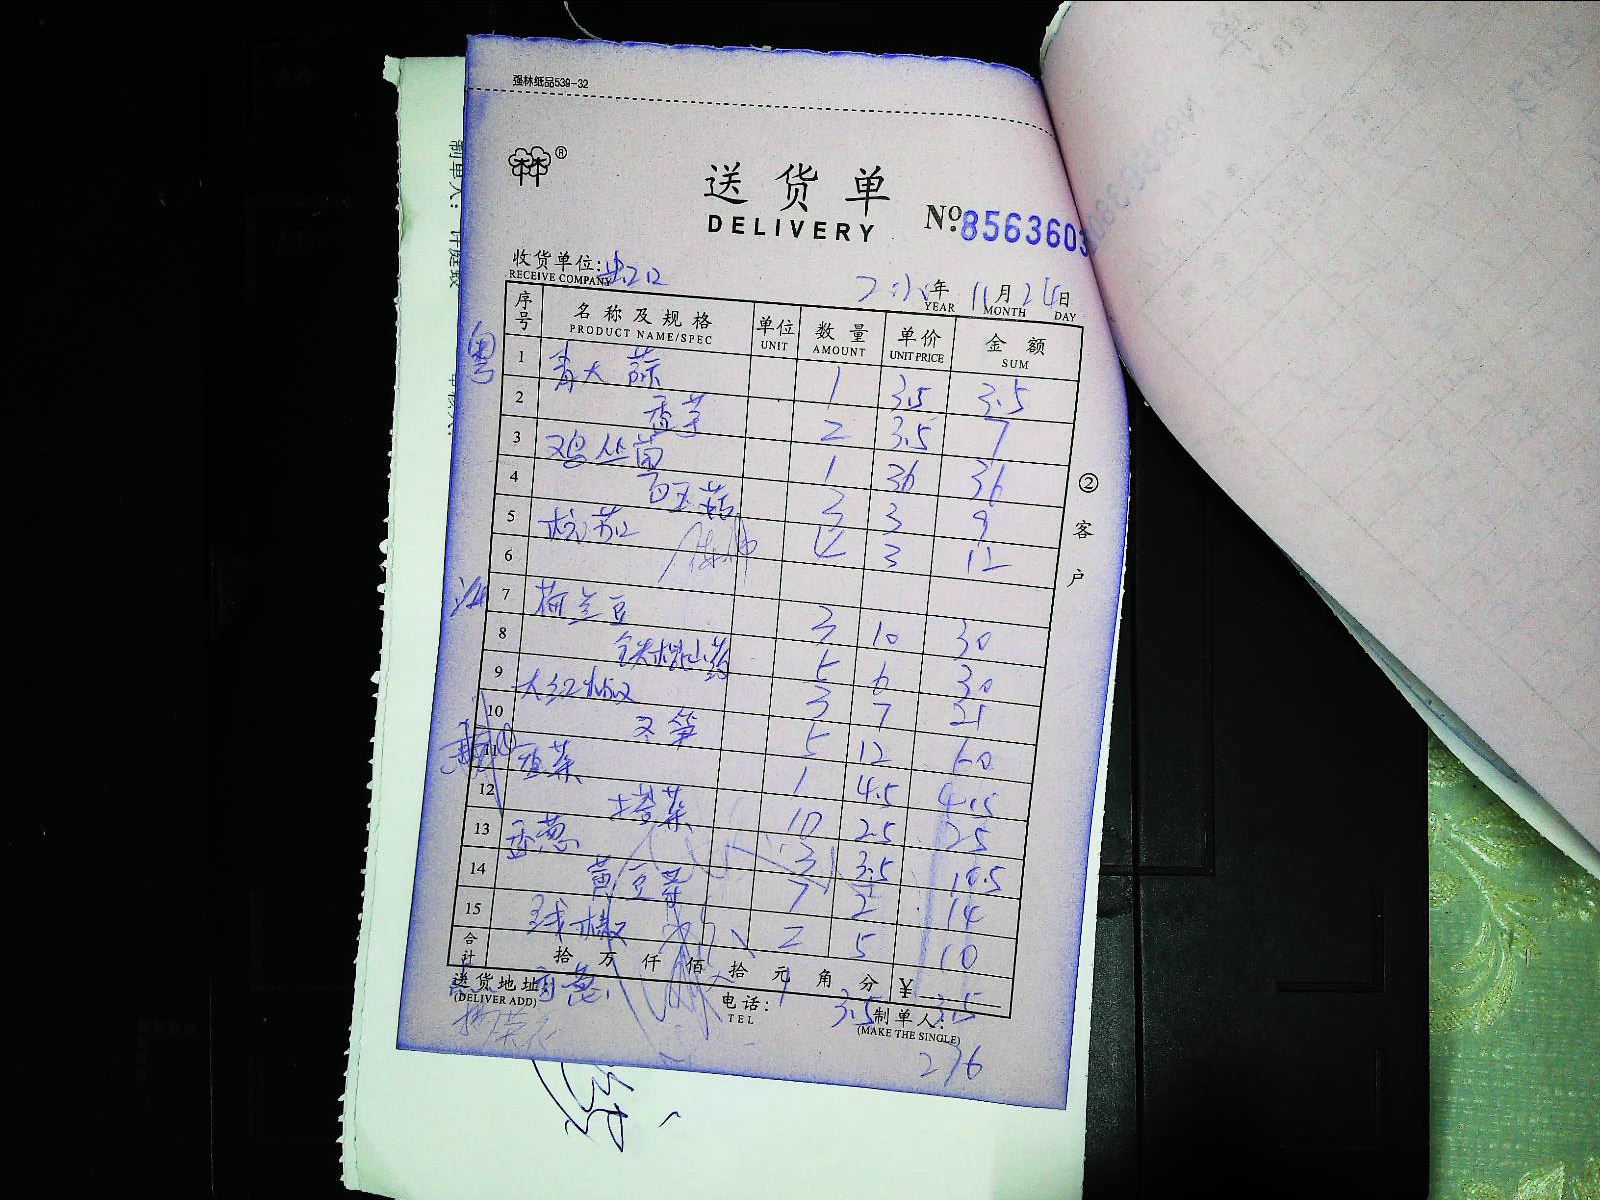 强林纸品539-32
®
送货单
DELIVERY
No. 8563603
收货单位:
RECEIVE COMPANY
年 11月 24日
YEAR MONTH DAY
序号 名称及规格 单位 数量 单价 金额
PRODUCT NAME/SPEC UNIT AMOUNT UNIT PRICE SUM
粤
1 青大蒜 1 3.5 3.5
2 香芋 2 3.5 7
3 鸡丛菌 1 36 36
4 白玉菇 3 3 9
5 杭苏 4 3 12
6
7 荷兰豆 3 10 30
8 铁棍山药 5 6 30
9 大红椒 3 7 21
10 冬笋 5 12 60
11 香菜 1 4.5 4.5
12 塔菜 10 2.5 25
13 香葱 3 3.5 10.5
14 黄豆芽 7 2 14
15 线椒 2 5 10
合计 拾 万 仟 佰 拾 元 角 分 ¥
送货地址:
(DELIVER ADD)
葱 1 3.5 3.5
电话:
TEL
制单人:
(MAKE THE SINGLE)
276
② 客户
制单人: